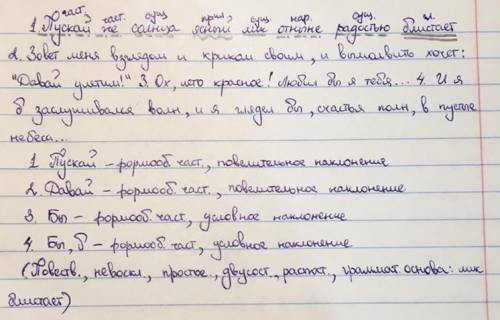 част. част. сущ. прил. сущ. нар. сущ. гл.
1. Пускай же солнца ясный лик отныне радостью блистает
2. Зовет меня взглядом и криком своим, и вымолвить хочет:
"Давай улетим!" 3. Ох, лето красное! Любил бы я тебя... 4. И я
б заслушивался волн, и я глядел бы, счастья полн, в пустые
небеса...
1. Пускай - формооб. част., повелительное наклонение
2. Давай - формооб. част., повелительное наклонение
3. Бы - формооб. част, условное наклонение
4. Бы, б - формооб. част, условное наклонение
(Повеств., невоскл., простое., двусост., распост., граммат. основа: лик
блистает)